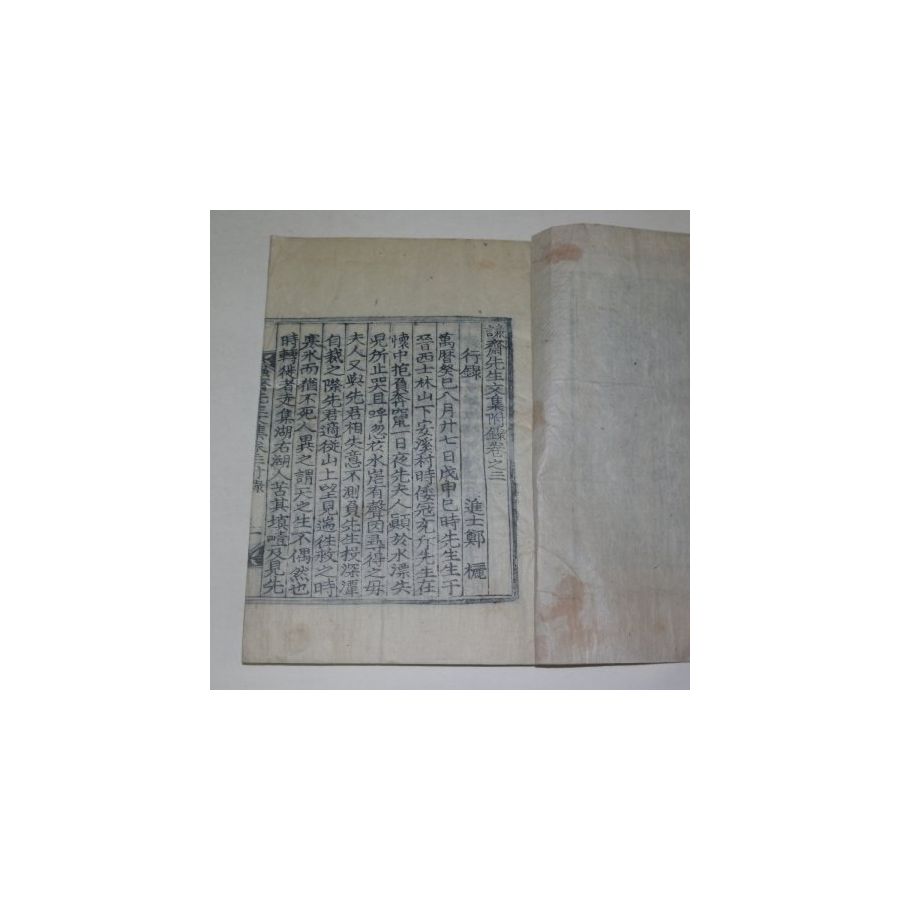 謙齋先生文集附錄卷之三
行錄 進士鄭欐
萬曆癸巳八月廿七日戊申巳時先生生于
晉西士林山下安溪村時倭冠充斥先生在
懷中抱負奔竄一日夜先夫人顚於水漂失
児所止哭且呼忽於水崖有聲因尋得之毋
夫人又與先君相失意不測負先生投深潭
自裁之際先君適從山上望見遄徃救之時
寒氷而猶不死人異之謂天之生不偶然也
時轉徙者咸集湖右湖人苦其塡噎及見先